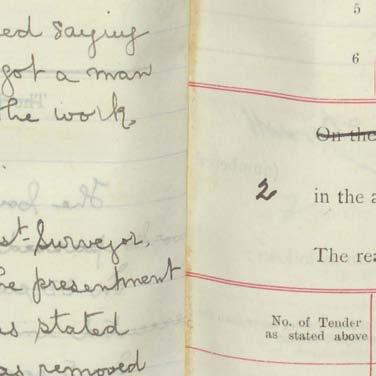 ed saying
got a man
the work.
st-Surveyor,
he presentment
as stated
as removed
5
6
On the
2 in the a
The rea
No. of Tender
as stated above